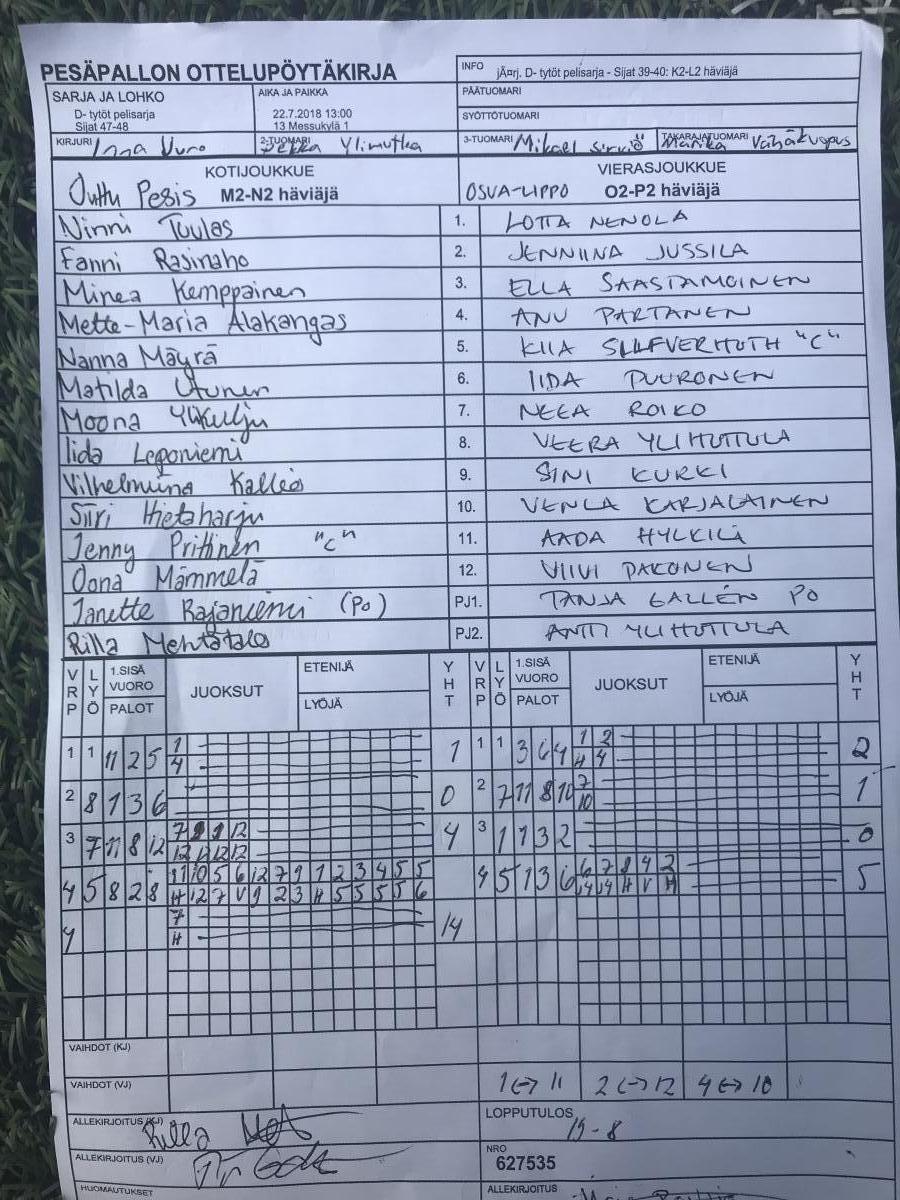 PESÄPALLON OTTELUPÖYTÄKIRJA
INFO jÃ¤rj. D- tytöt pelisarja - Sijat 39-40: K2-L2 häviäjä
SARJA JA LOHKO
D- tytöt pelisarja
Sijat 47-48
AIKA JA PAIKKA
22.7.2018 13:00
13 Messukylä 1
PÄÄTUOMARI
SYÖTTÖTUOMARI
KIRJURI Inna Vuro
2-TUOMARI Pekka Ylimutka
3-TUOMARI Mikael Sirviö
TAKARAJATUOMARI Marika Vähäkuopus
KOTIJOUKKUE
Outtu Pesis M2-N2 häviäjä
VIERASJOUKKUE
OSVA-LIPPO O2-P2 häviäjä
Ninni Tuulas 1. LOTTA NENOLA
Fanni Rasinaho 2. JENNIINA JUSSILA
Minea Kemppainen 3. ELLA SAASTAMOINEN
Mette-Maria Alakangas 4. ANU PARTANEN
Nanna Mäyrä 5. KIIA "C"
Matilda Utunen 6. IIDA PUURONEN
Moona 7. NEEA ROIKO
Iida Leponiemi 8. VEERA YLIHUTTULA
Vilhelmiina Kallio 9. SINI KURKI
Siiri Hietaharju 10. VENLA KARJALAINEN
Jenny Prittinen "C" 11. AADA HYLKILÄ
Oona Mämmelä 12. VIIVI PAKONEN
Janette Rajaniemi (PO) PJ1. TANJA GALLÉN PO
Rilla Mehtätalo PJ2. ANTTI YLIHUTTULA
VRP LYÖ 1.SISÄ VUORO PALOT JUOKSUT ETENIJÄ LYÖJÄ YHT VRP LYÖ 1.SISÄ VUORO PALOT JUOKSUT ETENIJÄ LYÖJÄ YHT
1 1 11 2 5 1 1 1 1 3 6 4 1 2 2
4 H 4
2 8 1 3 6 0 2 7 11 8 10 7 1
10
3 7 11 8 12 7 9 12 4 3 1 1 3 2 0
12 12 12 12
4 5 8 2 8 11 10 5 6 12 7 9 1 2 3 4 5 5 4 5 1 3 6 6 7 8 4 2 5
H 12 7 V 9 2 3 H 5 5 5 5 6 4 4 H V H
4 7 14
H
VAIHDOT (KJ)
VAIHDOT (VJ) 1<->11 2<->12 4<->10
ALLEKIRJOITUS (KJ) Rilla
LOPPUTULOS 19-8
ALLEKIRJOITUS (VJ)
NRO
627535
HUOMAUTUKSET
ALLEKIRJOITUS